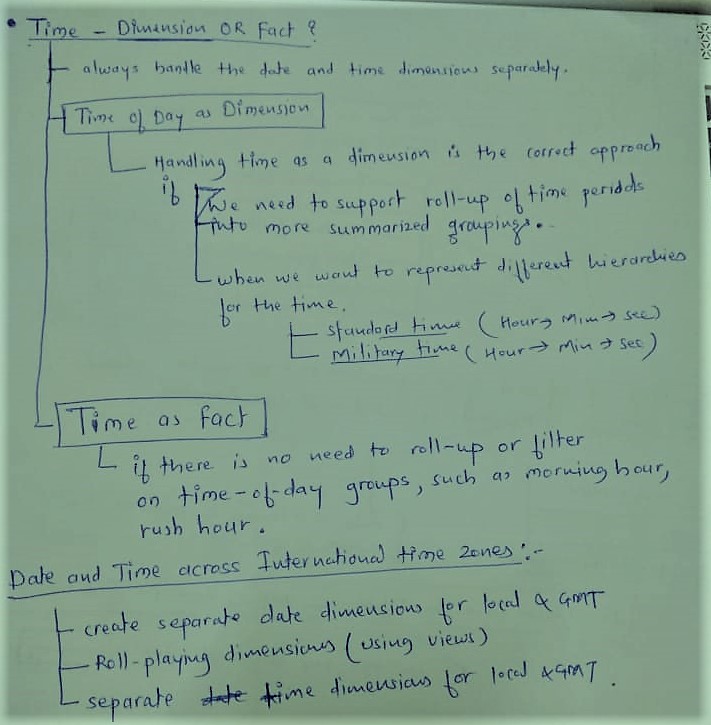 • Time - Dimension OR Fact ?
always handle the date and time dimensions separately.
Time of Day as Dimension
Handling time as a dimension is the correct approach
if We need to support roll-up of time periods
into more summarized groupings.
when we want to represent different hierarchies
for the time.
standard time (Hour → Min → sec)
Military time (Hour → Min → sec)
Time as fact
if there is no need to roll-up or filter
on time-of-day groups, such as morning hour,
rush hour.
Date and Time across International time zones :-
create separate date dimensions for local & GMT
Roll-playing dimensions (using views)
separate date time dimensions for local & GMT.